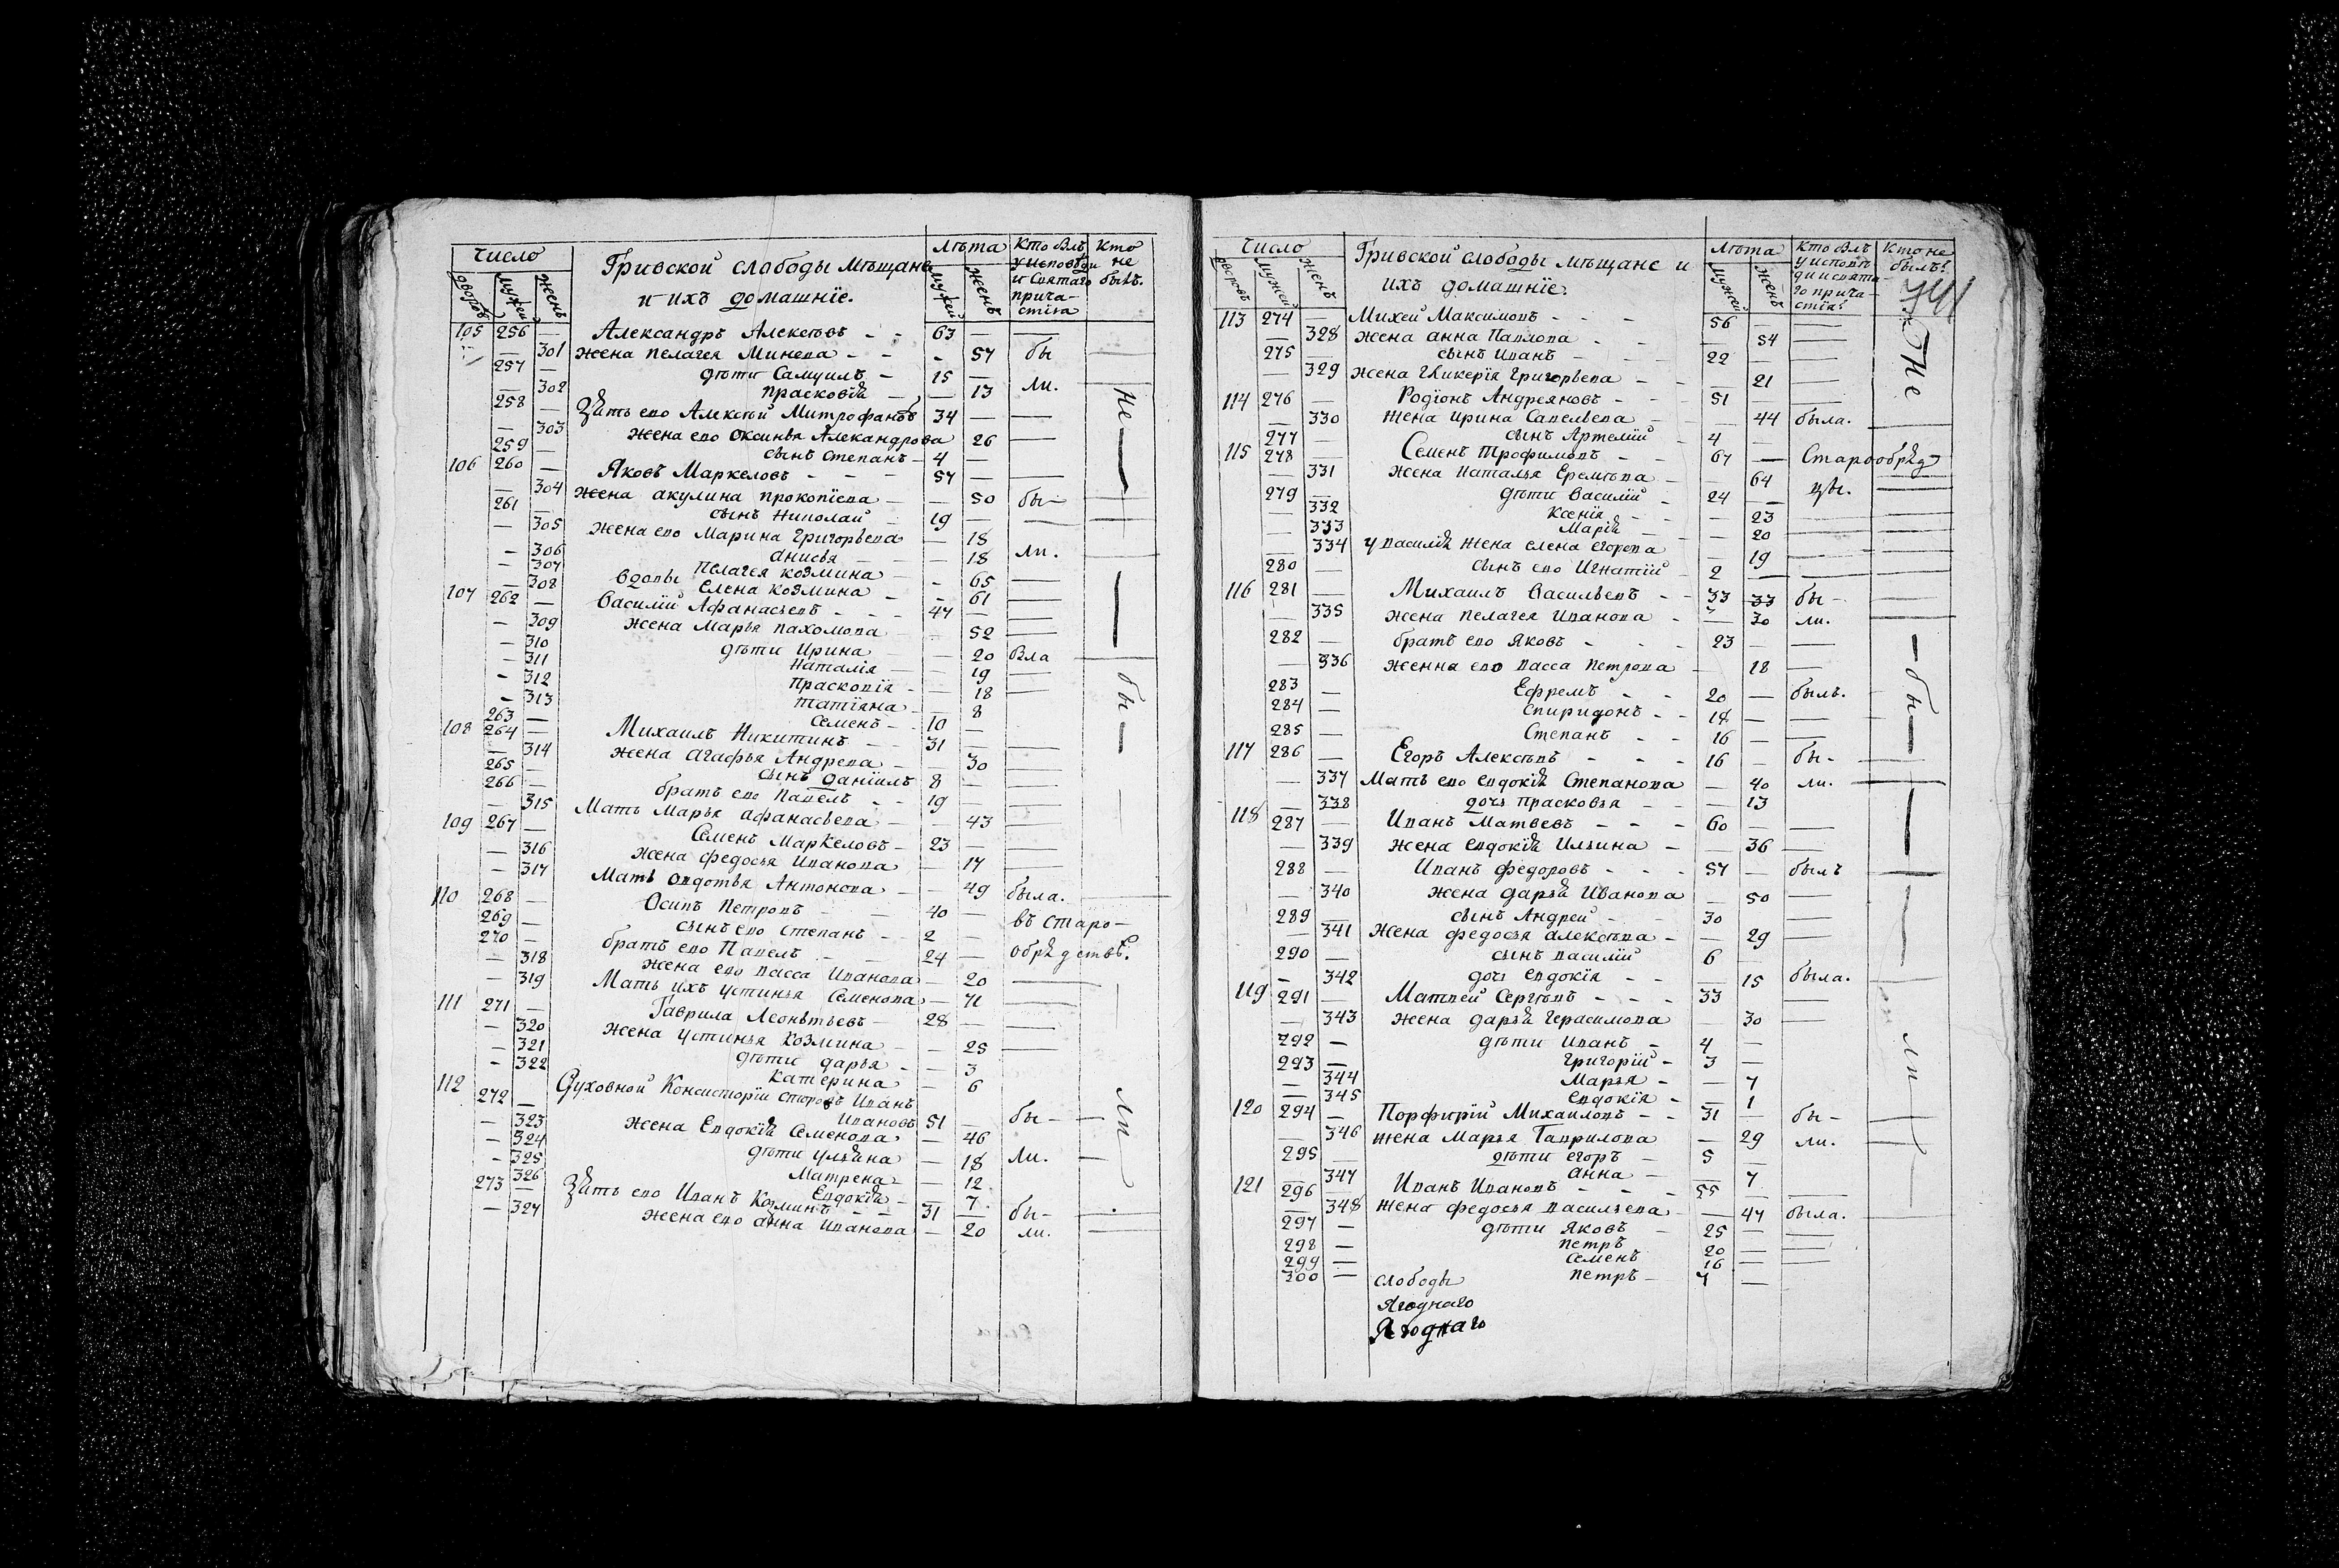 Число Гривской слободы мѣщане Лѣта Кто былъ Кто
у исповѣди не
и их домашніе. и Святаго былъ.
прича-
стія
дворовъ мужей женъ мужей женъ
105 256 — Александръ Алексѣевъ - - 63 —
— 301 жена Пелагея Минева - - - 57 бы
257 — дѣти Самуилъ - 15 —
— 302 Прасковія — — 13 ли.
258 — Зять его Алексѣй Митрофановъ 34 —
— 303 жена его Оксинья Алекандрова 26
259 — сынъ Степанъ - 4 —
106 260 — Яковъ Маркеловъ - - - 57 —
— 304 жена акулина прокопіева — — 50 бы-
261 — сынъ Николай - 19 —
— 305 жена его Марина Григорьева — 18
— 306 анисья — — 18 ли.
— 307 вдовы Пелагея козмина - - 65
— 308 Елена козмина - - 61
107 262 — Василій Афанасьевъ - - - 47 —
— 309 жена Марья пахомова 52
— 310 дѣти Ирина — — 20 была
— 311 Наталія — — 19
— 312 Прасковія - — 18
— 313 татіяна - — 8
263 — Семенъ - 10 —
108 264 — Михаилъ Никитинъ - - 31 —
— 314 жена агафья Андрева - — 30
265 — сынъ даніилъ 8 —
266 — братъ его Павелъ - - 19 —
— 315 Мать Марья афанасьева — — 43
109 267 — Семенъ Маркеловъ - 23 —
— 316 жена федосья Иванова — 17
— 317 Мать Овдотья Антонова - — 49 была.
110 268 — Осипъ Петровъ - - 40 — въ старо-
269 — сынъ его Степанъ - 2 —
270 — братъ его Павелъ - - 24 — обрядствѣ.
— 318 жена его васса Иванова — 20
— 319 Мать ихъ устинья Семенова — 71
111 271 — Гаврила Леонтьевъ - 28 —
— 320 жена устинья Козмина - — 25
— 321 дѣти дарья - — 3
— 322 Катерина — 6
112 272 — Духовной Консисторіи сторожъ Иванъ
Ивановъ 51 — бы-
— 323 жена Евдокія Семенова — 46
— 324 дѣти ульяна — 18 ли.
— 325 Матрена - — 12
— 326 Евдокія - — 7.
273 — Зять его Иванъ Козминъ - - 31 — бы-
— 327 жена его анна Иванова — 20 ли.
Не — бы — ли
Число Гривской слободы мѣщане и Лѣта Кто былъ Кто не
у исповѣ- былъ?
их домашніе. ди и свята-
го прича-
стія?
дворовъ мужей женъ мужей женъ
741
113 274 — Михей Максимовъ - - - 56 —
— 328 жена анна Павлова - — 54
275 — сынъ Иванъ - - 22 —
— 329 жена гликерія григорьева - - — 21
114 276 — Родіонъ Андреяновъ - - 51 —
— 330 жена ирина Савельева - 44 была.
277 — сынъ Артемій - 4 —
115 278 — Семенъ Трофимовъ - - 67 — Старообряд
— 331 жена Наталья Еремѣева - — 64
279 — дѣти Василій - 24 — цы.
— 332 Ксенія - - — 23
— 333 Марія - — 20
— 334 у василія жена елена егорова — 19
280 — сынъ его Игнатій - 2 —
116 281 — Михаилъ Васильевъ - - 33 33 бы-
— 335 жена пелагея Иванова - — 30 ли.
282 — братъ его Яковъ - - - 23 —
— 336 женна его васса петрова — 18
283 — Ефремъ - - 20 — былъ.
284 — Спиридонъ - - 18 —
285 — Степанъ - - 16 —
117 286 — Егоръ Алексѣевъ - - - 16 — бы-
— 337 Мать его евдокія Степанова — 40 ли.
— 338 дочь прасковья - - — 13
118 287 — Иванъ Матвеевъ - - - 60 —
— 339 жена евдокія ильина - — 36
288 — Иванъ федоровъ - - - 57 — былъ
— 340 жена дарья Иванова — 50
289 — сынъ Андрей - - 30
— 341 жена федосья алексѣева - — 29
290 — сынъ василій 6 —
— 342 дочь евдокія - - — 15 была.
119 291 — Матвей Сергѣевъ - - - 33 —
— 343 жена дарья герасимова — 30
292 — дѣти Иванъ - 4 —
293 — григорій - 3 —
— 344 Марья - — 7
— 345 евдокія - — 1
120 294 — Порфирій Михаиловъ - - 31 — бы-
— 346 жена Марья Гаврилова — 29 ли.
295 — дѣти егоръ — 5 —
— 347 анна — — 7
121 296 — Иванъ Ивановъ - - - 55 —
— 348 жена федосья васильева - — 47 была.
297 — дѣти Яковъ - 25 —
298 — петръ 20 —
299 — семенъ 16 —
300 — слободы петръ - 4 —
Ягоднаго
Ягоднаго
Не — бы — ли